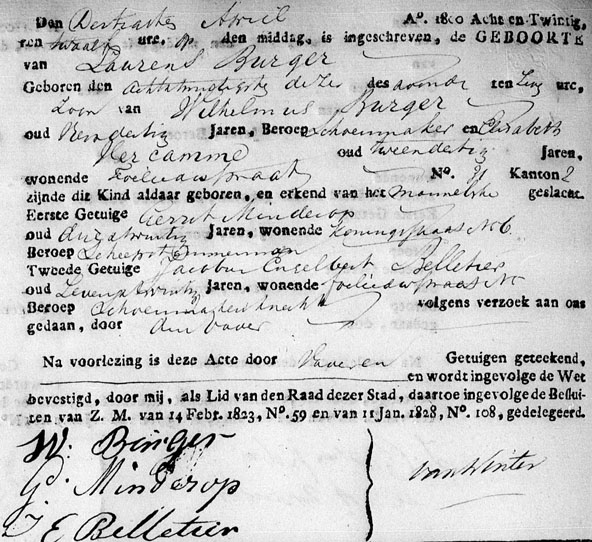 Den Dertigsten April A°. 1800 Acht en Twintig,
ten twaalf ure, op den middag, is ingeschreven, de GEBOORTE
van Laurens Burger
Geboren den achtentwintigste dezer des avonds ten zeven ure,
Zoon van Wilhelmus Burger
oud Jaren, Beroep Schoenmaker en Elisabeth
Ver camme oud tweendertig Jaren,
wonende Foeliedwarsstraat N°. 91 Kanton 2
zijnde dit Kind aldaar geboren, en erkend van het Mannelijke geslacht.
Eerste Getuige Gerrit Minderop
oud Jaren, wonende Koningsstraat No 6
Beroep Scheepstimmerman
Tweede Getuige Jacobus Engelbert Belletier
oud Zevenentwintig Jaren, wonende No
Beroep Schoenmakersknecht volgens verzoek aan ons
gedaan, door den Vader
Na voorlezing is deze Acte door Vader en Getuigen geteekend,
en wordt ingevolge de Wet
bevestigd, door mij, als Lid van den Raad dezer Stad, daartoe ingevolge de Beslui-
ten van Z. M. van 14 Febr. 1823, N°. 59 en van 11 Jan. 1828, N°. 108, gedelegeerd.
W. Burger
G. Minderop
van Winter
J E Belletier